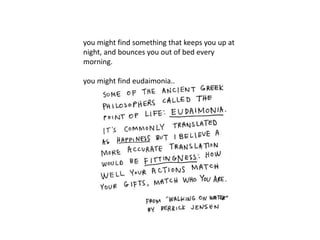 you might find something that keeps you up at
night, and bounces you out of bed every
morning.
you might find eudaimonia..
SOME OF THE ANCIENT GREEK
PHILOSOPHERS CALLED THE
POINT OF LIFE: EUDAIMONIA.
IT'S COMMONLY TRANSLATED
AS HAPPINESS BUT I BELIEVE A
MORE ACCURATE TRANSLATION
WOULD BE FITTINGNESS: HOW
WELL YOUR ACTIONS MATCH
YOUR GIFTS, MATCH WHO YOU ARE.
FROM "WALKING ON WATER"
BY DERRICK JENSEN